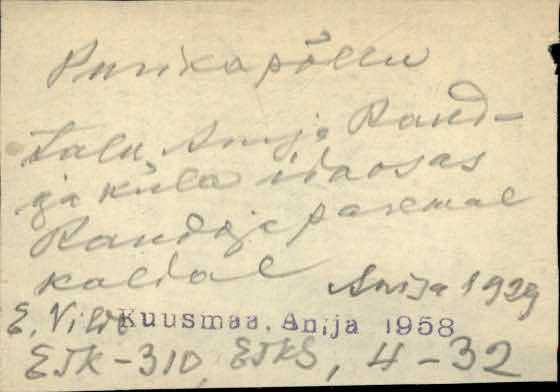 Purikapõllu
talu, Anija Raud-
oja küla idaosas
Raudoja paremal
kaldal Anija 1929
E. Vilde Kuusmaa. Anija 1958
ETK-310, ETKS, 4-32